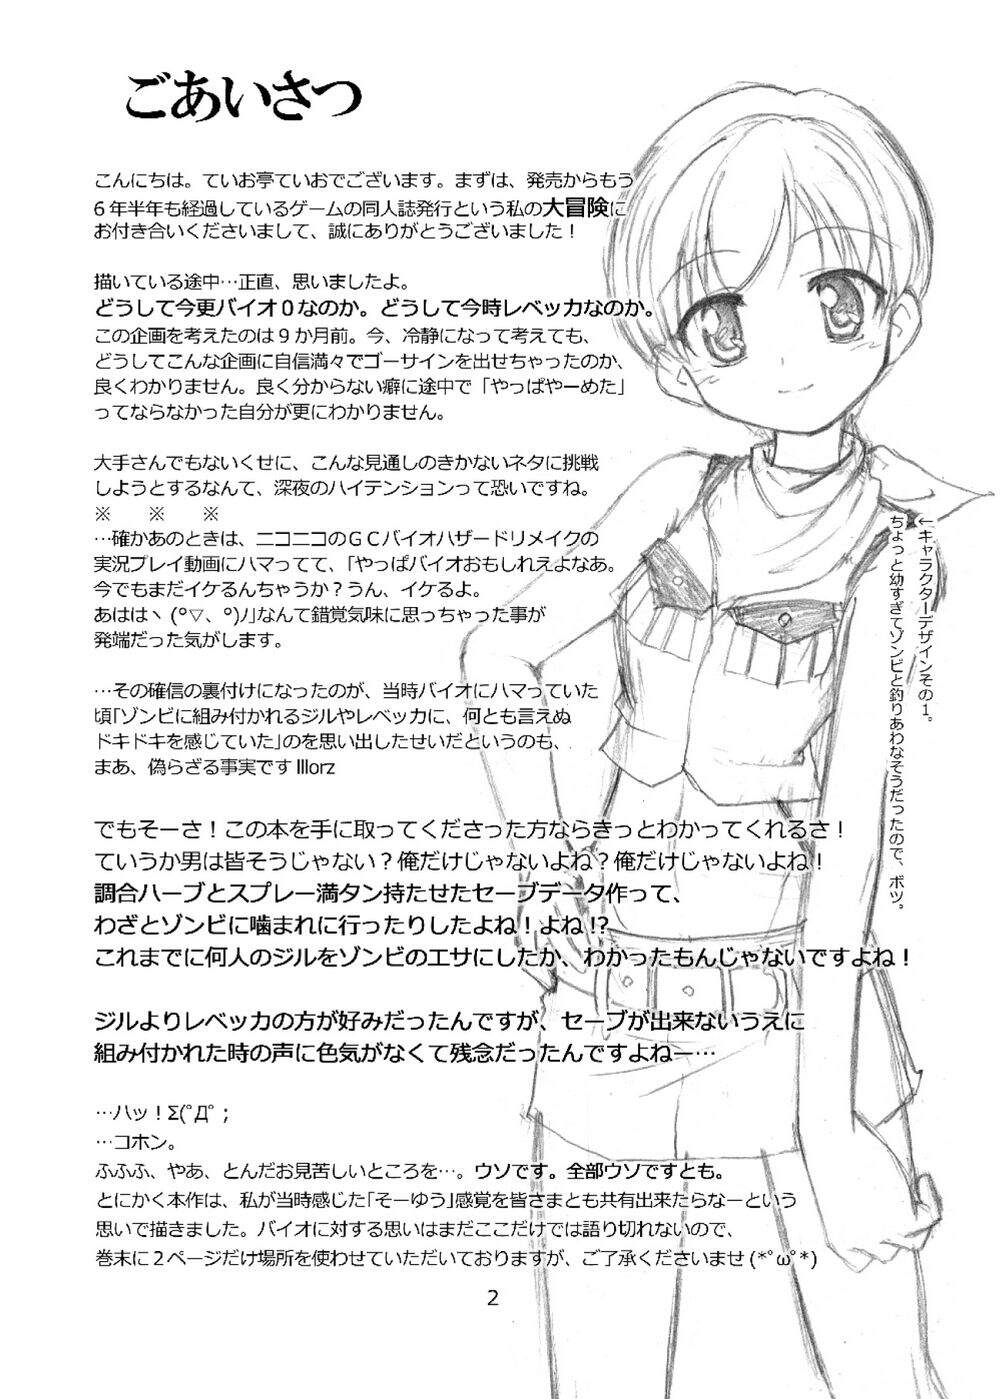 ごあいさつ
こんにちは。ていお亭ていおでございます。まずは、発売からもう
6年半年も経過しているゲームの同人誌発行という私の大冒険に
お付き合いくださいまして、誠にありがとうございました！
描いている途中…正直、思いましたよ。
どうして今更バイオ０なのか。どうして今時レベッカなのか。
この企画を考えたのは９か月前。今、冷静になって考えても、
どうしてこんな企画に自信満々でゴーサインを出せちゃったのか、
良くわかりません。良く分からない癖に途中で「やっぱやーめた」
ってならなかった自分が更にわかりません。
大手さんでもないくせに、こんな見通しのきかないネタに挑戦
しようとするなんて、深夜のハイテンションって恐いですね。
※　※　※
…確かあのときは、ニコニコのＧＣバイオハザードリメイクの
実況プレイ動画にハマってて、「やっぱバイオおもしれえよなあ。
今でもまだイケるんちゃうか？うん、イケるよ。
あははヽ(°▽、°)ﾉ」なんて錯覚気味に思っちゃった事が
発端だった気がします。
…その確信の裏付けになったのが、当時バイオにハマっていた
頃「ゾンビに組み付かれるジルやレベッカに、何とも言えぬ
ドキドキを感じていた」のを思い出したせいだというのも、
まあ、偽らざる事実です lllorz
でもそーさ！この本を手に取ってくださった方ならきっとわかってくれるさ！
ていうか男は皆そうじゃない？俺だけじゃないよね？俺だけじゃないよね！
調合ハーブとスプレー満タン持たせたセーブデータ作って、
わざとゾンビに噛まれに行ったりしたよね！よね!?
これまでに何人のジルをゾンビのエサにしたか、わかったもんじゃないですよね！
ジルよりレベッカの方が好みだったんですが、セーブが出来ないうえに
組み付かれた時の声に色気がなくて残念だったんですよねー…
…ハッ！Σ(ﾟДﾟ；
…コホン。
ふふふ、やあ、とんだお見苦しいところを…。ウソです。全部ウソですとも。
とにかく本作は、私が当時感じた「そーゆう」感覚を皆さまとも共有出来たらなーという
思いで描きました。バイオに対する思いはまだここだけでは語り切れないので、
巻末に２ページだけ場所を使わせていただいておりますが、ご了承くださいませ(*ﾟωﾟ*)
←キャラクターデザインその１。
ちょっと幼すぎてゾンビと釣りあわなそうだったので、ボツ。
2